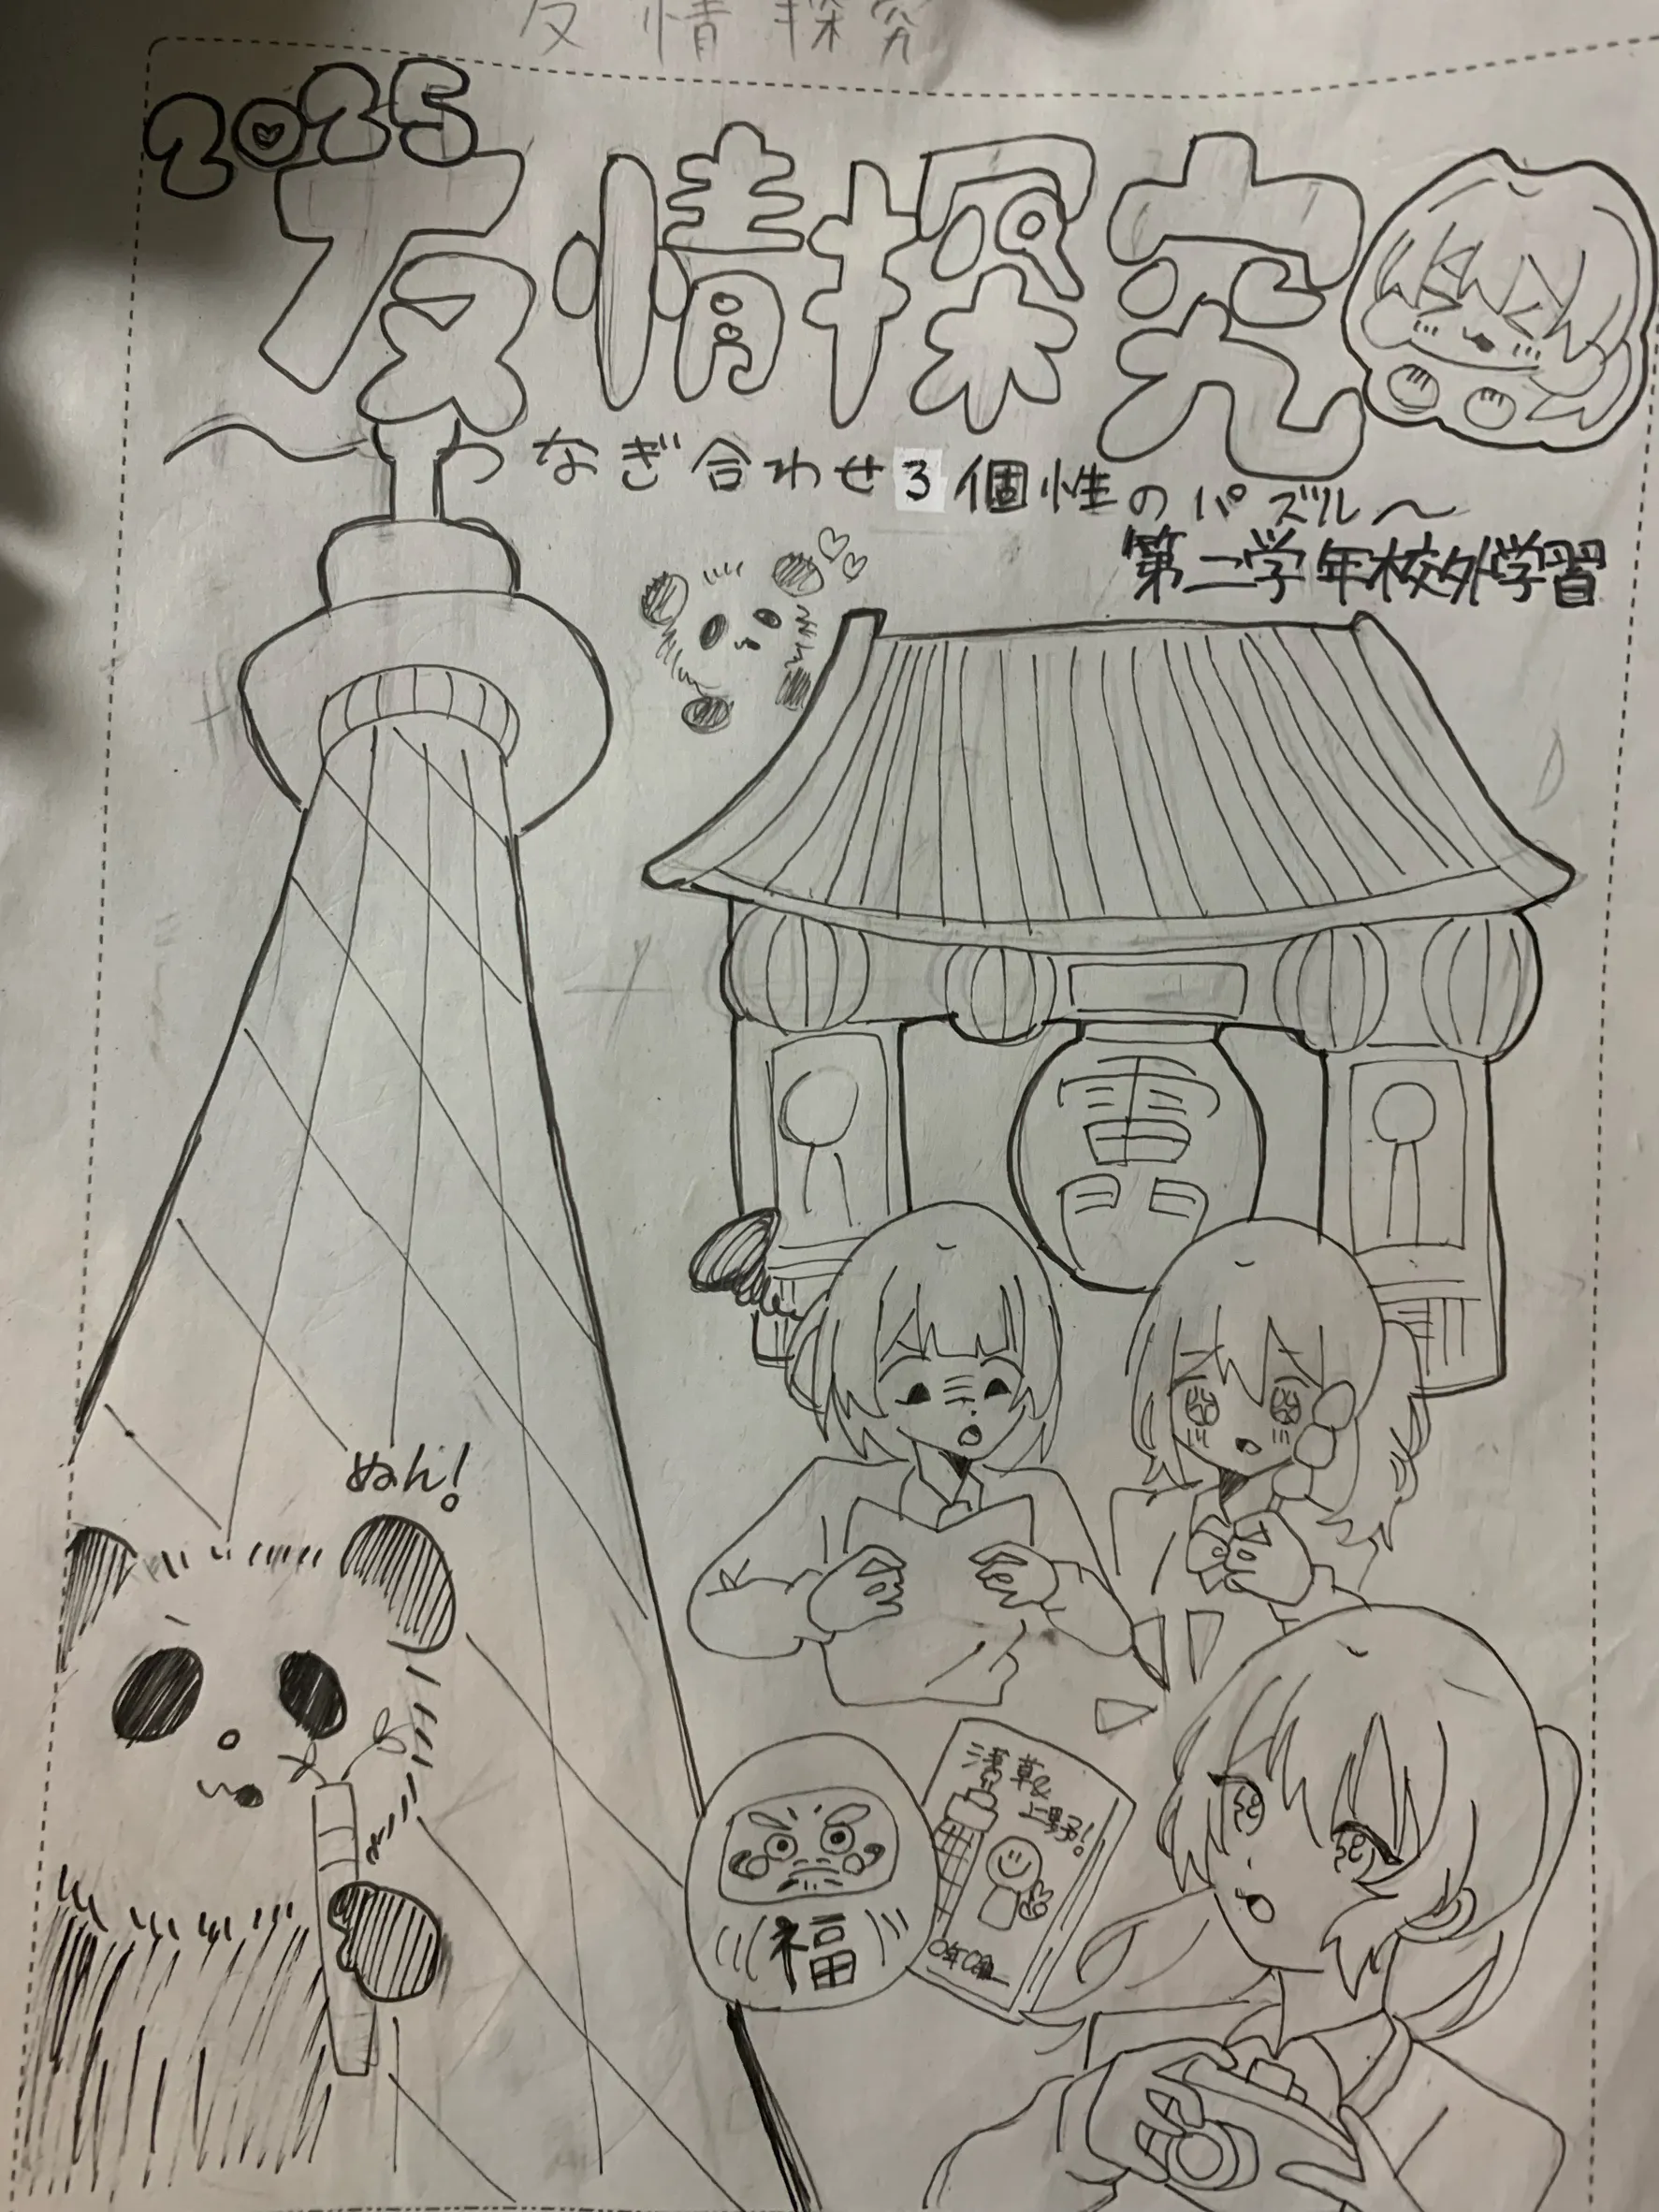 友情探究
2025
友情探究
つなぎ合わせろ個性のパズル〜
第二学年校外学習
雷門
ぬん!
浅草&
上野!
福